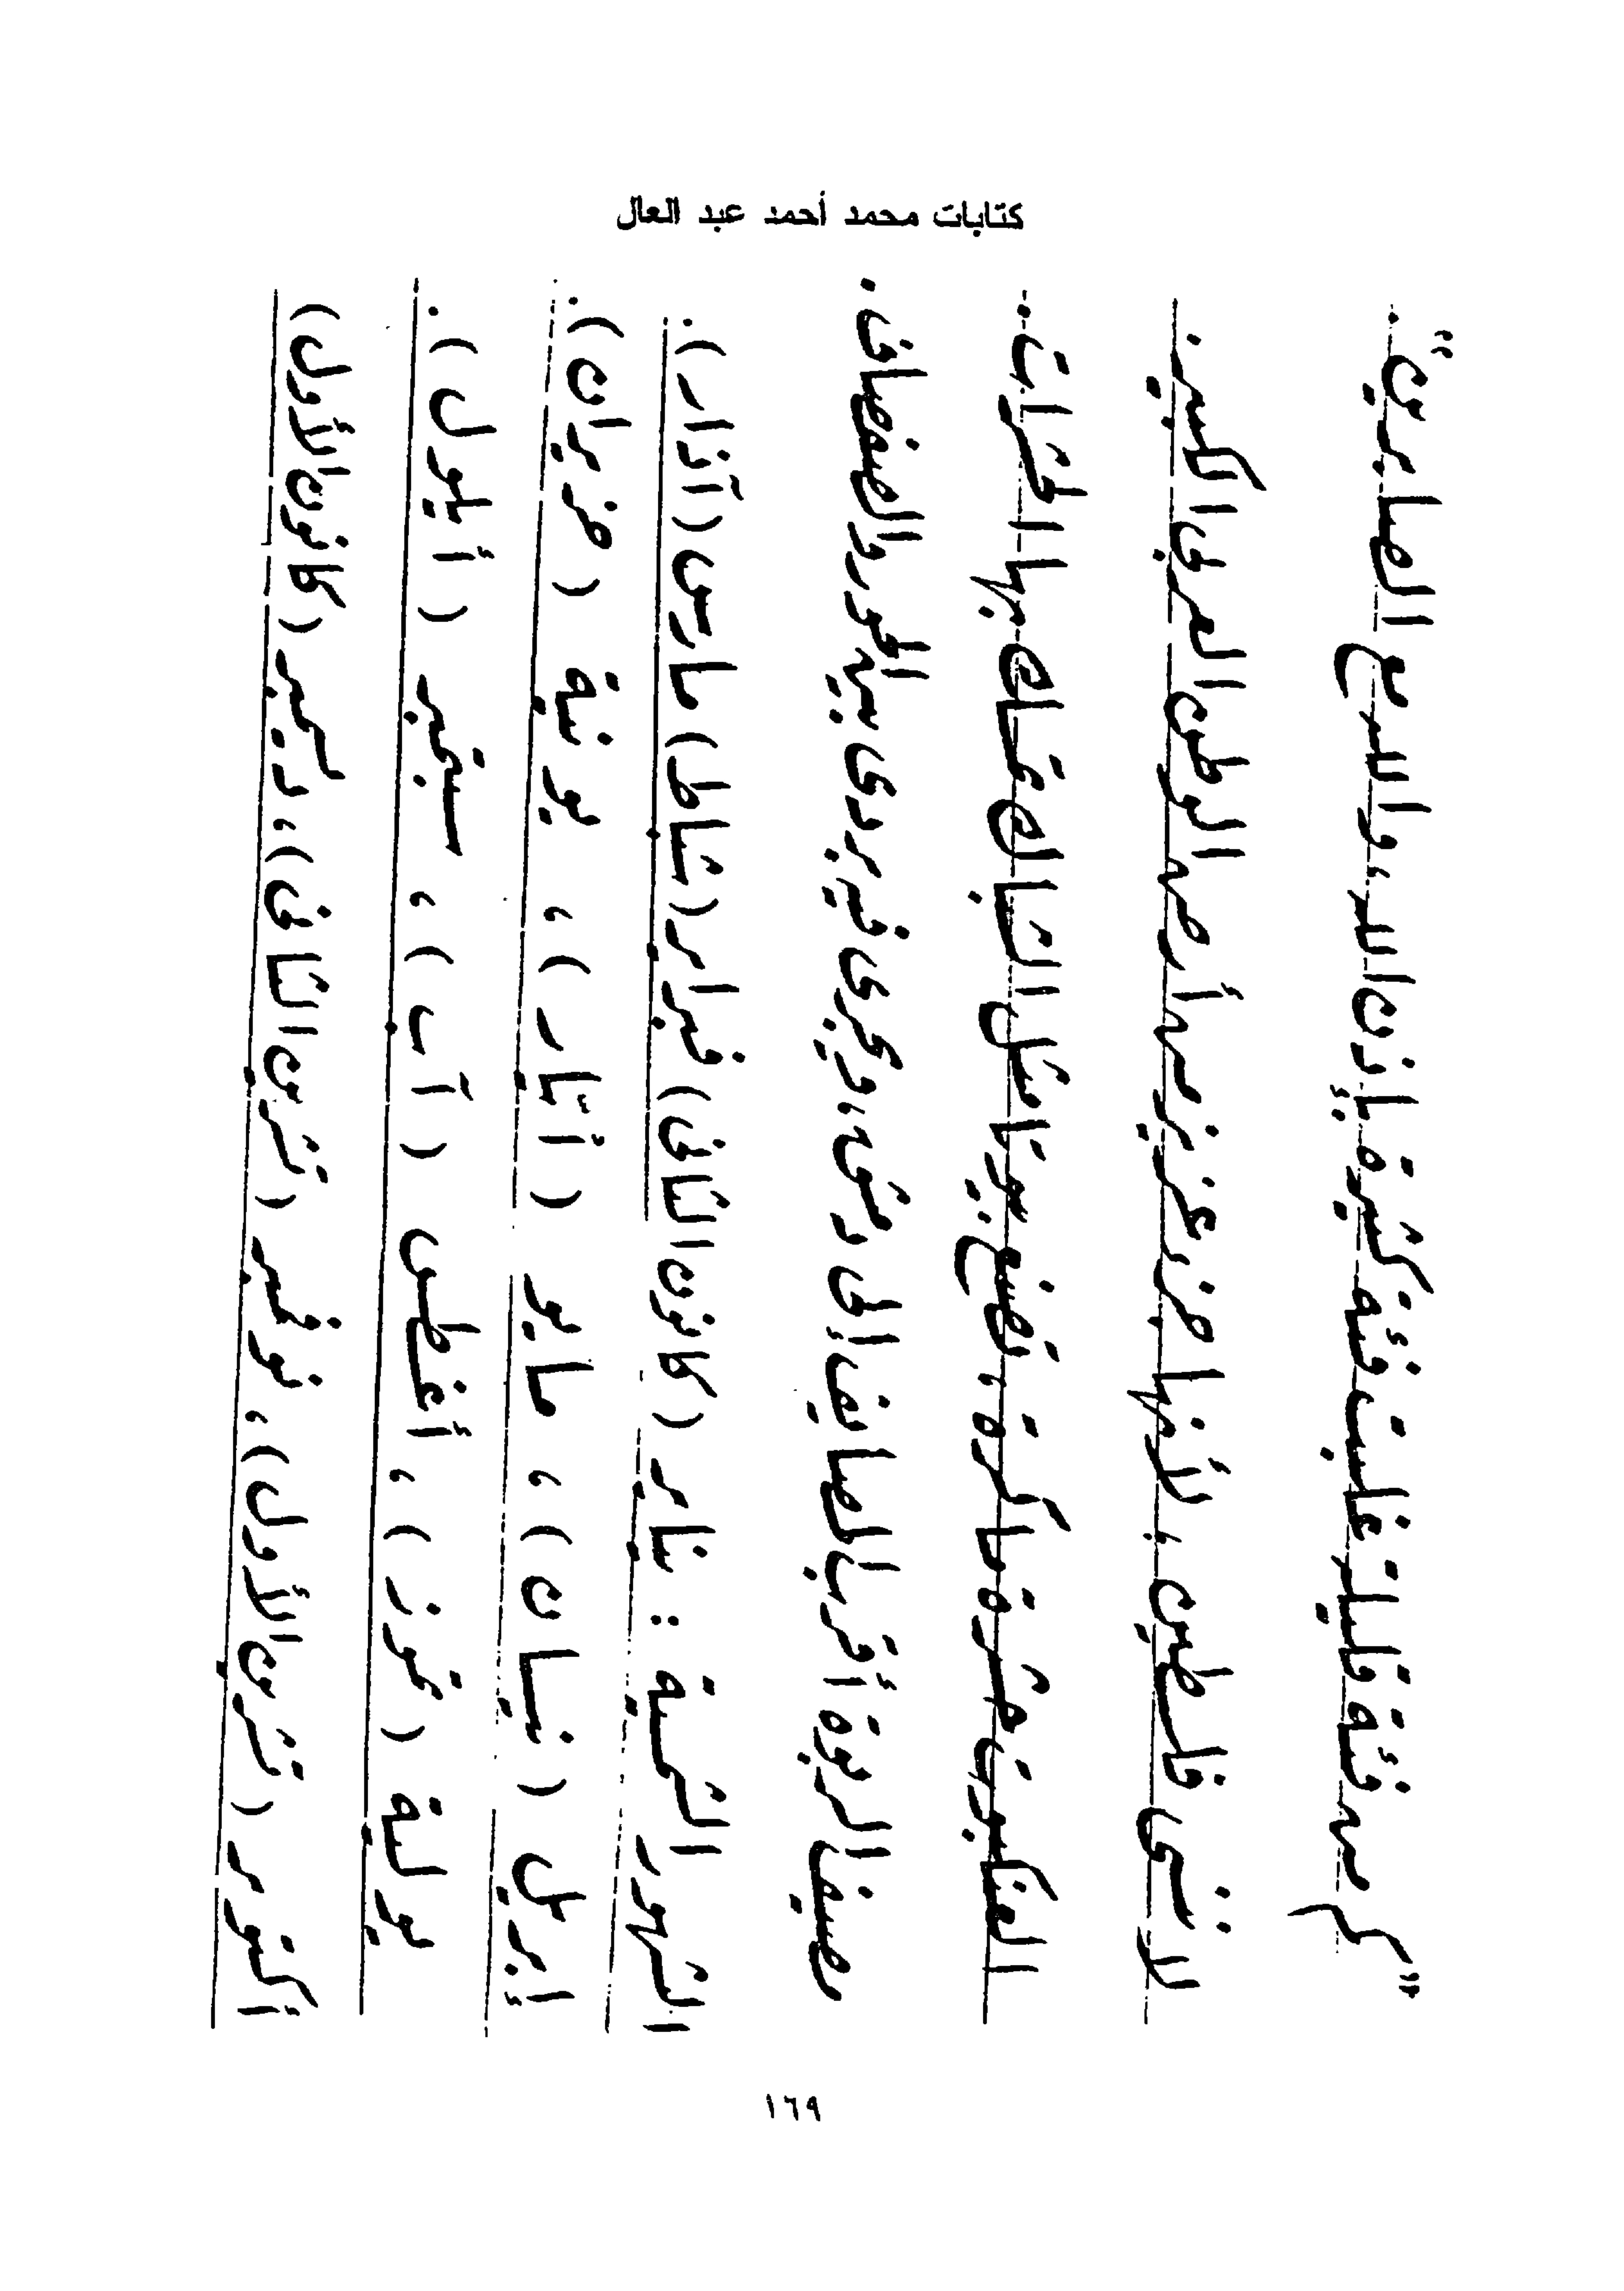 كتابات محمد أحمد عبد العال
"كم من فئة قليلة غلبت فئة كثيرة بإذن الله، والله مع الصابرين".
لا ننسى فلسطين، لأنها جزء عزيز من أرض الوطن العربى الكبير.
العنكبوت حشرة ماكرة، تصنع بيوتا مثل الشباك تصاد بها الحشرات..
مصيف الربوة أقرب المصايف إلى دمشق، ويجرى فيه بردى بين الحور والصفصاف.
الشهور الشمسية : يناير (كانون الثانى) فبراير (شباط) مارس (آذار).
إبريل (نيسان)، مايو (أيّار)، يونية (حزيران).
يولية (تموز)، أغسطس (آب)، سبتمبر (أيلول).
أكتوبر (تشرين الأول)، نوفمبر (تشرين الثانى)، ديسمبر (كانون الأول)
١٦٩